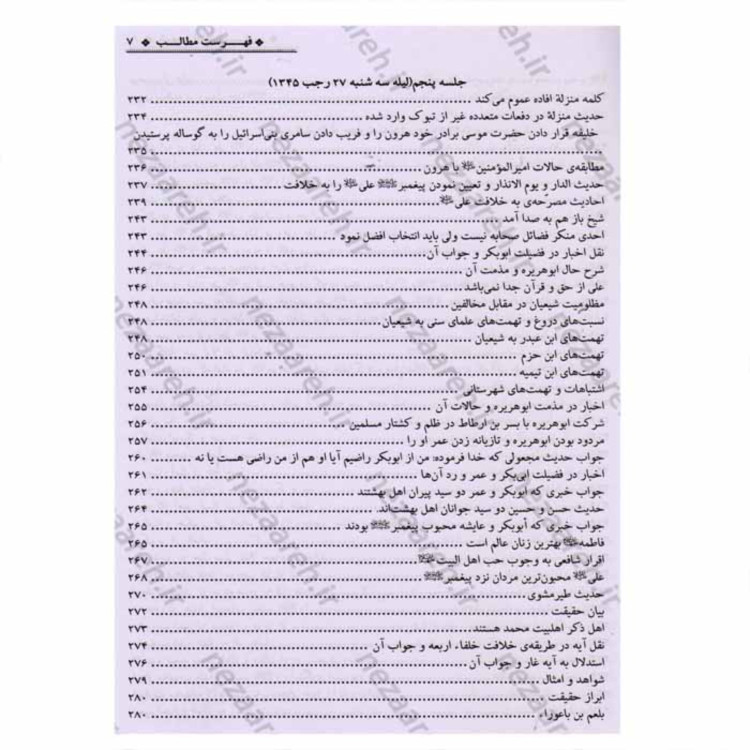 ❖ فهـــرست مطالـــب ❖ ۷
جلسه پنجم(لیله سه شنبه ۲۷ رجب ۱۳۴۵)
کلمه منزلة افاده عموم می‌کند ۲۳۲
حدیث منزلة در دفعات متعدده غیر از تبوک وارد شده ۲۳۴
خلیفه قرار دادن حضرت موسی برادر خود هرون را و فریب دادن سامری بنی‌اسرائیل را به گوساله پرستیدن
۲۳۵
مطابقه‌ی حالات امیرالمؤمنین با هرون ۲۳۶
حدیث الدار و یوم الانذار و تعیین نمودن پیغمبر علی را به خلافت ۲۳۷
احادیث مصرّحه‌ی به خلافت علی ۲۳۹
شیخ باز هم به صدا آمد ۲۴۳
احدی منکر فضائل صحابه نیست ولی باید انتخاب افضل نمود ۲۴۳
نقل اخبار در فضیلت ابوبکر و جواب آن ۲۴۴
شرح حال ابوهریره و مذمت آن ۲۴۶
علی از حق و قرآن جدا نمی‌باشد ۲۴۶
مظلومیت شیعیان در مقابل مخالفین ۲۴۸
نسبت‌های دروغ و تهمت‌های علمای سنی به شیعیان ۲۴۸
تهمت‌های ابن عبدر به شیعیان ۲۴۸
تهمت‌های ابن حزم ۲۵۰
تهمت‌های ابن تیمیه ۲۵۱
اشتباهات و تهمت‌های شهرستانی ۲۵۴
اخبار در مذمت ابوهریره و حالات آن ۲۵۵
شرکت ابوهریره با بسر بن ارطاط در ظلم و کشتار مسلمین ۲۵۶
مردود بودن ابوهریره و تازیانه زدن عمر او را ۲۵۷
جواب حدیث مجعولی که خدا فرموده: من از ابوبکر راضیم آیا او هم از من راضی هست یا نه ۲۶۰
اخبار در فضیلت ابی‌بکر و عمر و رد آن‌ها ۲۶۱
جواب خبری که ابوبکر و عمر دو سید پیران اهل بهشتند ۲۶۲
حدیث حسن و حسین دو سید جوانان اهل بهشت‌اند ۲۶۴
جواب خبری که أبوبکر و عایشه محبوب پیغمبر بودند ۲۶۵
فاطمه بهترین زنان عالم است ۲۶۵
اقرار شافعی به وجوب حب اهل البیت ۲۶۷
علی محبون‌ترین مردان نزد پیغمبر ۲۶۸
حدیث طیرمشوی ۲۷۰
بیان حقیقت ۲۷۲
اهل ذکر اهلبیت محمد هستند ۲۷۳
نقل آیه در طریقه‌ی خلافت خلفاء اربعه و جواب آن ۲۷۴
استدلال به آیه غار و جواب آن ۲۷۶
شواهد و امثال ۲۷۹
ابراز حقیقت ۲۸۰
بلعم بن باعوراء ۲۸۰
nezaareh.ir